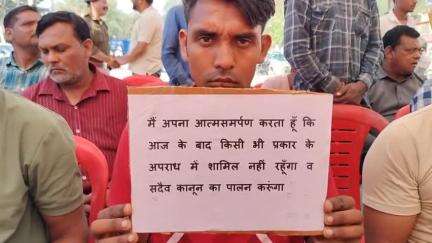 मैं अपना आत्मसमर्पण करता हूँ कि
आज के बाद किसी भी प्रकार के
अपराध में शामिल नहीं रहूँगा व
सदैव कानून का पालन करुंगा